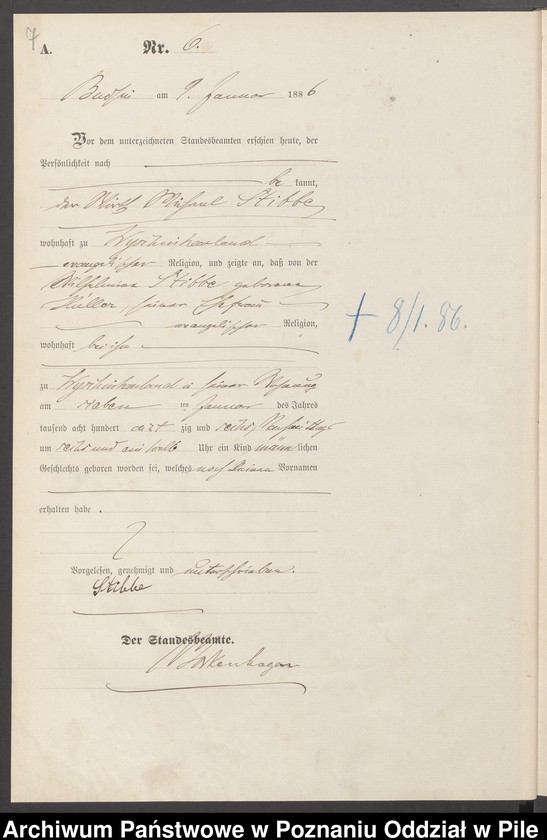 7
A. Nr. 6.
am 9. Januar 1886
Vor dem unterzeichneten Standesbeamten erschien heute, der
Persönlichkeit nach
be kannt,
der Wirth Michael Stibbe
wohnhaft zu
evangelischer Religion, und zeigte an, daß von der
Wilhelmine Stibbe geborenen
Müller, seiner Ehefrau
evangelischer Religion,
wohnhaft bei ihm
zu in seiner Wohnung
am sieben ten Januar des Jahres
tausend acht hundert acht zig und sechs, Nachmittags
um sechs und ein halb Uhr ein Kind männ lichen
Geschlechts geboren worden sei, welches noch keinen Vornamen
erhalten habe .
Vorgelesen, genehmigt und unterschrieben.
Stibbe
Der Standesbeamte.
+ 8/1. 86.
Archiwum Państwowe w Poznaniu Oddział w Pile